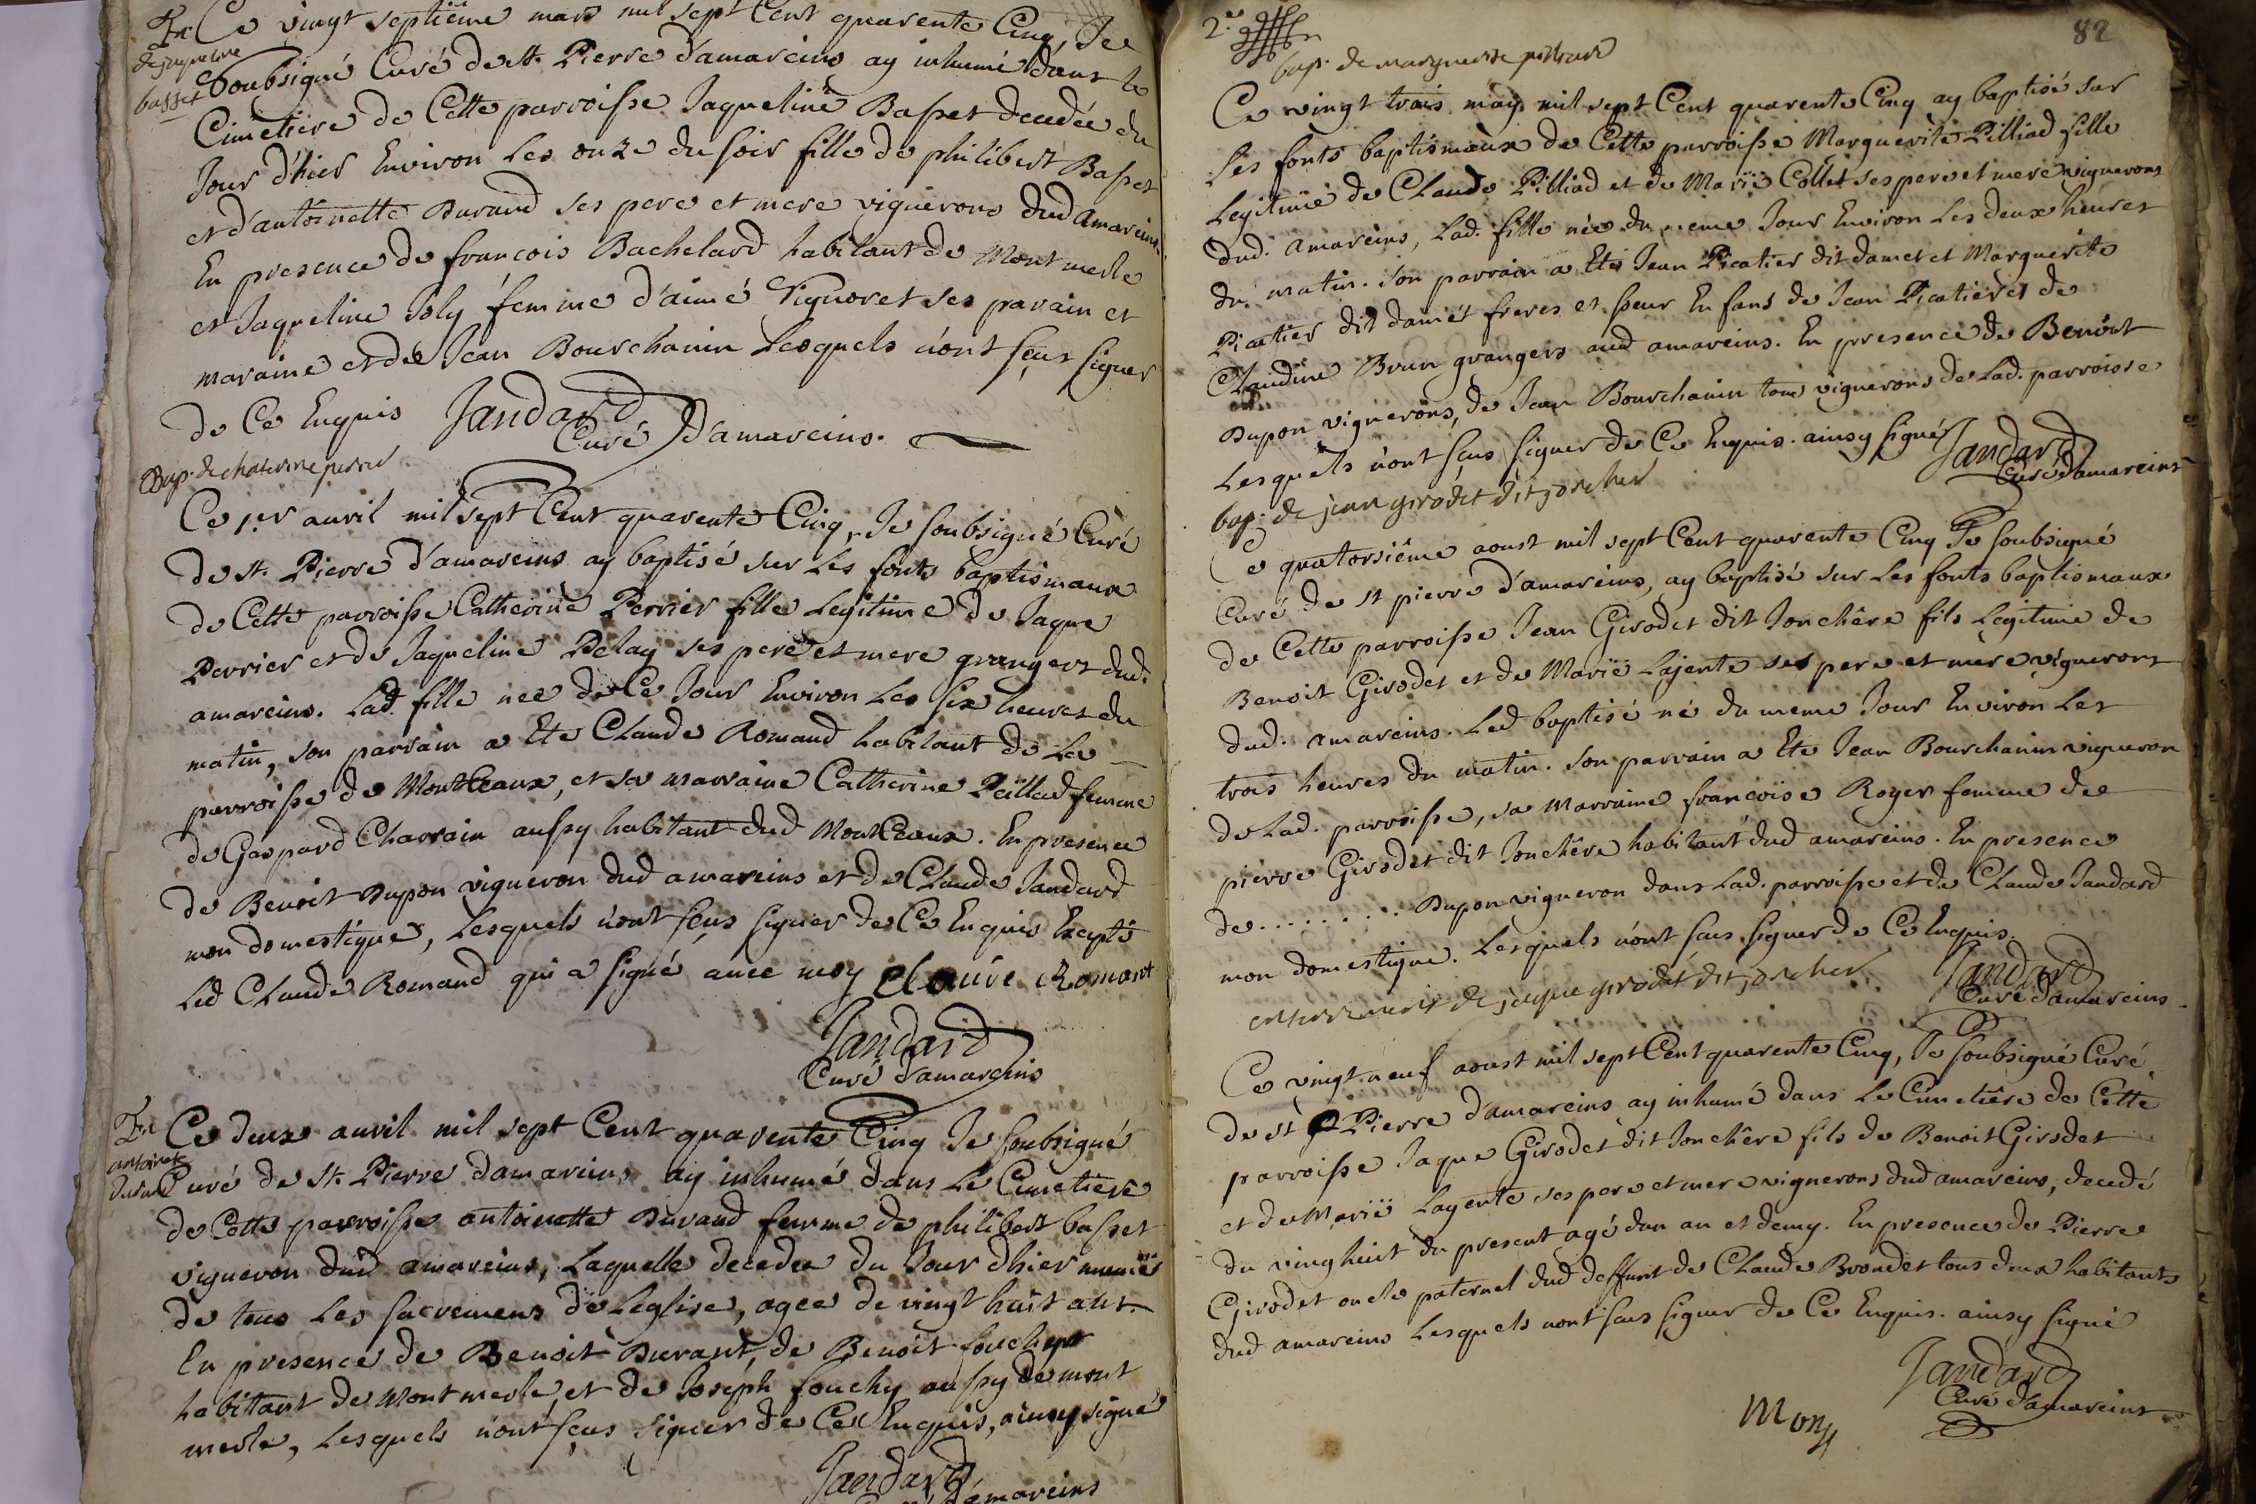 En Ce vingt septiême mars mil sept Cent quarente Cinq, Je
de jaqueline
basset
Soubsigué Curé de St. Pierre d'amareins ay inhumé dans le
Cimetiere de Cette parroisse Jaqueline Basset decedée du
Jour d'hier Environ Les onze du soir fille de philibert Basset
et d'antoinette Durand ses pere et mere vignerons dud amareins.
En presence de francois Bachelard habitant de Montmerle
et Jaqueline Joly femme d'aimé Vignoret ses parain et
maraine et de Jean Bourchanin Lesquels n'ont sçus signer
de Ce Enquis Jandard
Curé D'amareins.
Bap. de chaterine perrier
Ce 1.er auril mil sept Cent quarente Cinq, Je soubsigné Curé
de St. Pierre d'amareins ay baptisé sur Les fonts baptismaux
de Cette parroisse Catherine Perrier fille Legitime de Jaque
Perrier et de Jaqueline Pelay ses pere et mere grangers dud.
amareins. Lad. fille neé de Ce Jour Environ Les six heures du
matin, son parrain a Eté Claude Romand habitant de La
parroisse de Montceaux, et sa marraine Catherine Paillad femme
de Gaspard Charrain aussy habitant dud Montceaux. En presence
de Benoit Dupon vigneron dud amareins et de Claude Jandard
mon domestique, Lesquels n'ont sçus signer de Ce Enquis Excepté
Led Claude Romand qui a signé auec moy Claude Romant
Jandard
Curé d'amareins
En Ce deux auril mil sept Cent quarente Cinq Je soubsigné
antoinete
durand
Curé de St. Pierre damareins ay inhumé dans Le Cimetiere
de Cette parroisse antoinette Durand femme de philibert basset
vigneron dud amareins, Laquelle decedée du Jour dhier munie
de tous Les sacremens de Leglise, ageé de vingt huit ans
En presence de Benoit Durant, de Benoit fouchy
habitant de Montmerle, et de Joseph fouchy aussy de mont
merle, Lesquels n'ont sçus signer de Ce Enquis, ainsy signé
Jandard
Curé d'amareins
2.e
82
bap. de marguerite pilliad
Ce vingt trois may mil sept Cent quarente Cinq ay baptisé sur
Les fonts baptismaux de Cette parroisse Marguerite Pilliad fille
Legitime de Claude Pilliad et de Marië Collet ses pere et mere vignerons
dud. amareins, Lad. fille née du meme Jour Environ Les deux heures
du matin. son parrain a Eté Jean Picatier dit damet et Marguerite
Picatier dit damet freres et sœur Enfans de Jean Picatier et de
Claudine Brun grangers aud amareins. En presence de Benoit
Dupon vignerons, de Jean Bourchanin tous vignerons de Lad. parroisse
Lesquels n'ont sçus signer de Ce Enquis. ainsy signé Jandard
Curé d'amareins
bap. de jean girodet dit joncher
Ce quatorsiême aoust mil sept Cent quarente Cinq Je soubsigné
Curé de St pierre d'amareins, ay baptisé sur Les fonts baptismaux
de Cette parroisse Jean Girodet dit Jonchêre fils Legitime de
Benoit Girodet et de Marië Lajente ses pere et mere vignerons
dud. amareins. Led baptisé né du meme Jour Environ Les
trois heures du matin. son parrain a Eté Jean Bourchanin vigneron
de Lad. parroisse, sa marraine françoise Royer femme de
pierre Girodet dit Jonchêre habitant dud amareins. En presence
de . . . . . . . . . Dupon vigneron dans Lad. parroisse et de Claude Jandard
mon domestique. Lesquels n'ont sçus signer de Ce Enquis.
Jandard
Curé d'amareins
enterrement de jaque girodet dit joncher
Ce vingt neuf aoust mil sept Cent quarente Cinq, Je soubsigné Curé
de St Pierre d'amareins ay inhumé dans Le Cimetiêre de Cette
parroisse Jaque Girodet dit Jonchêre fils de Benoit Girodet
et de Marië Layente ses pere et mere vignerons dud amareins, decedé
du vinghuit du present agé dun an et demy. En presence de Pierre
Girodet oncle paternel dud deffunt de Claude Brondet tous deux habitants
dud amareins Lesquels n'ont sçus signer de Ce Enquis. ainsy signé
Jandard
Curé d'amareins